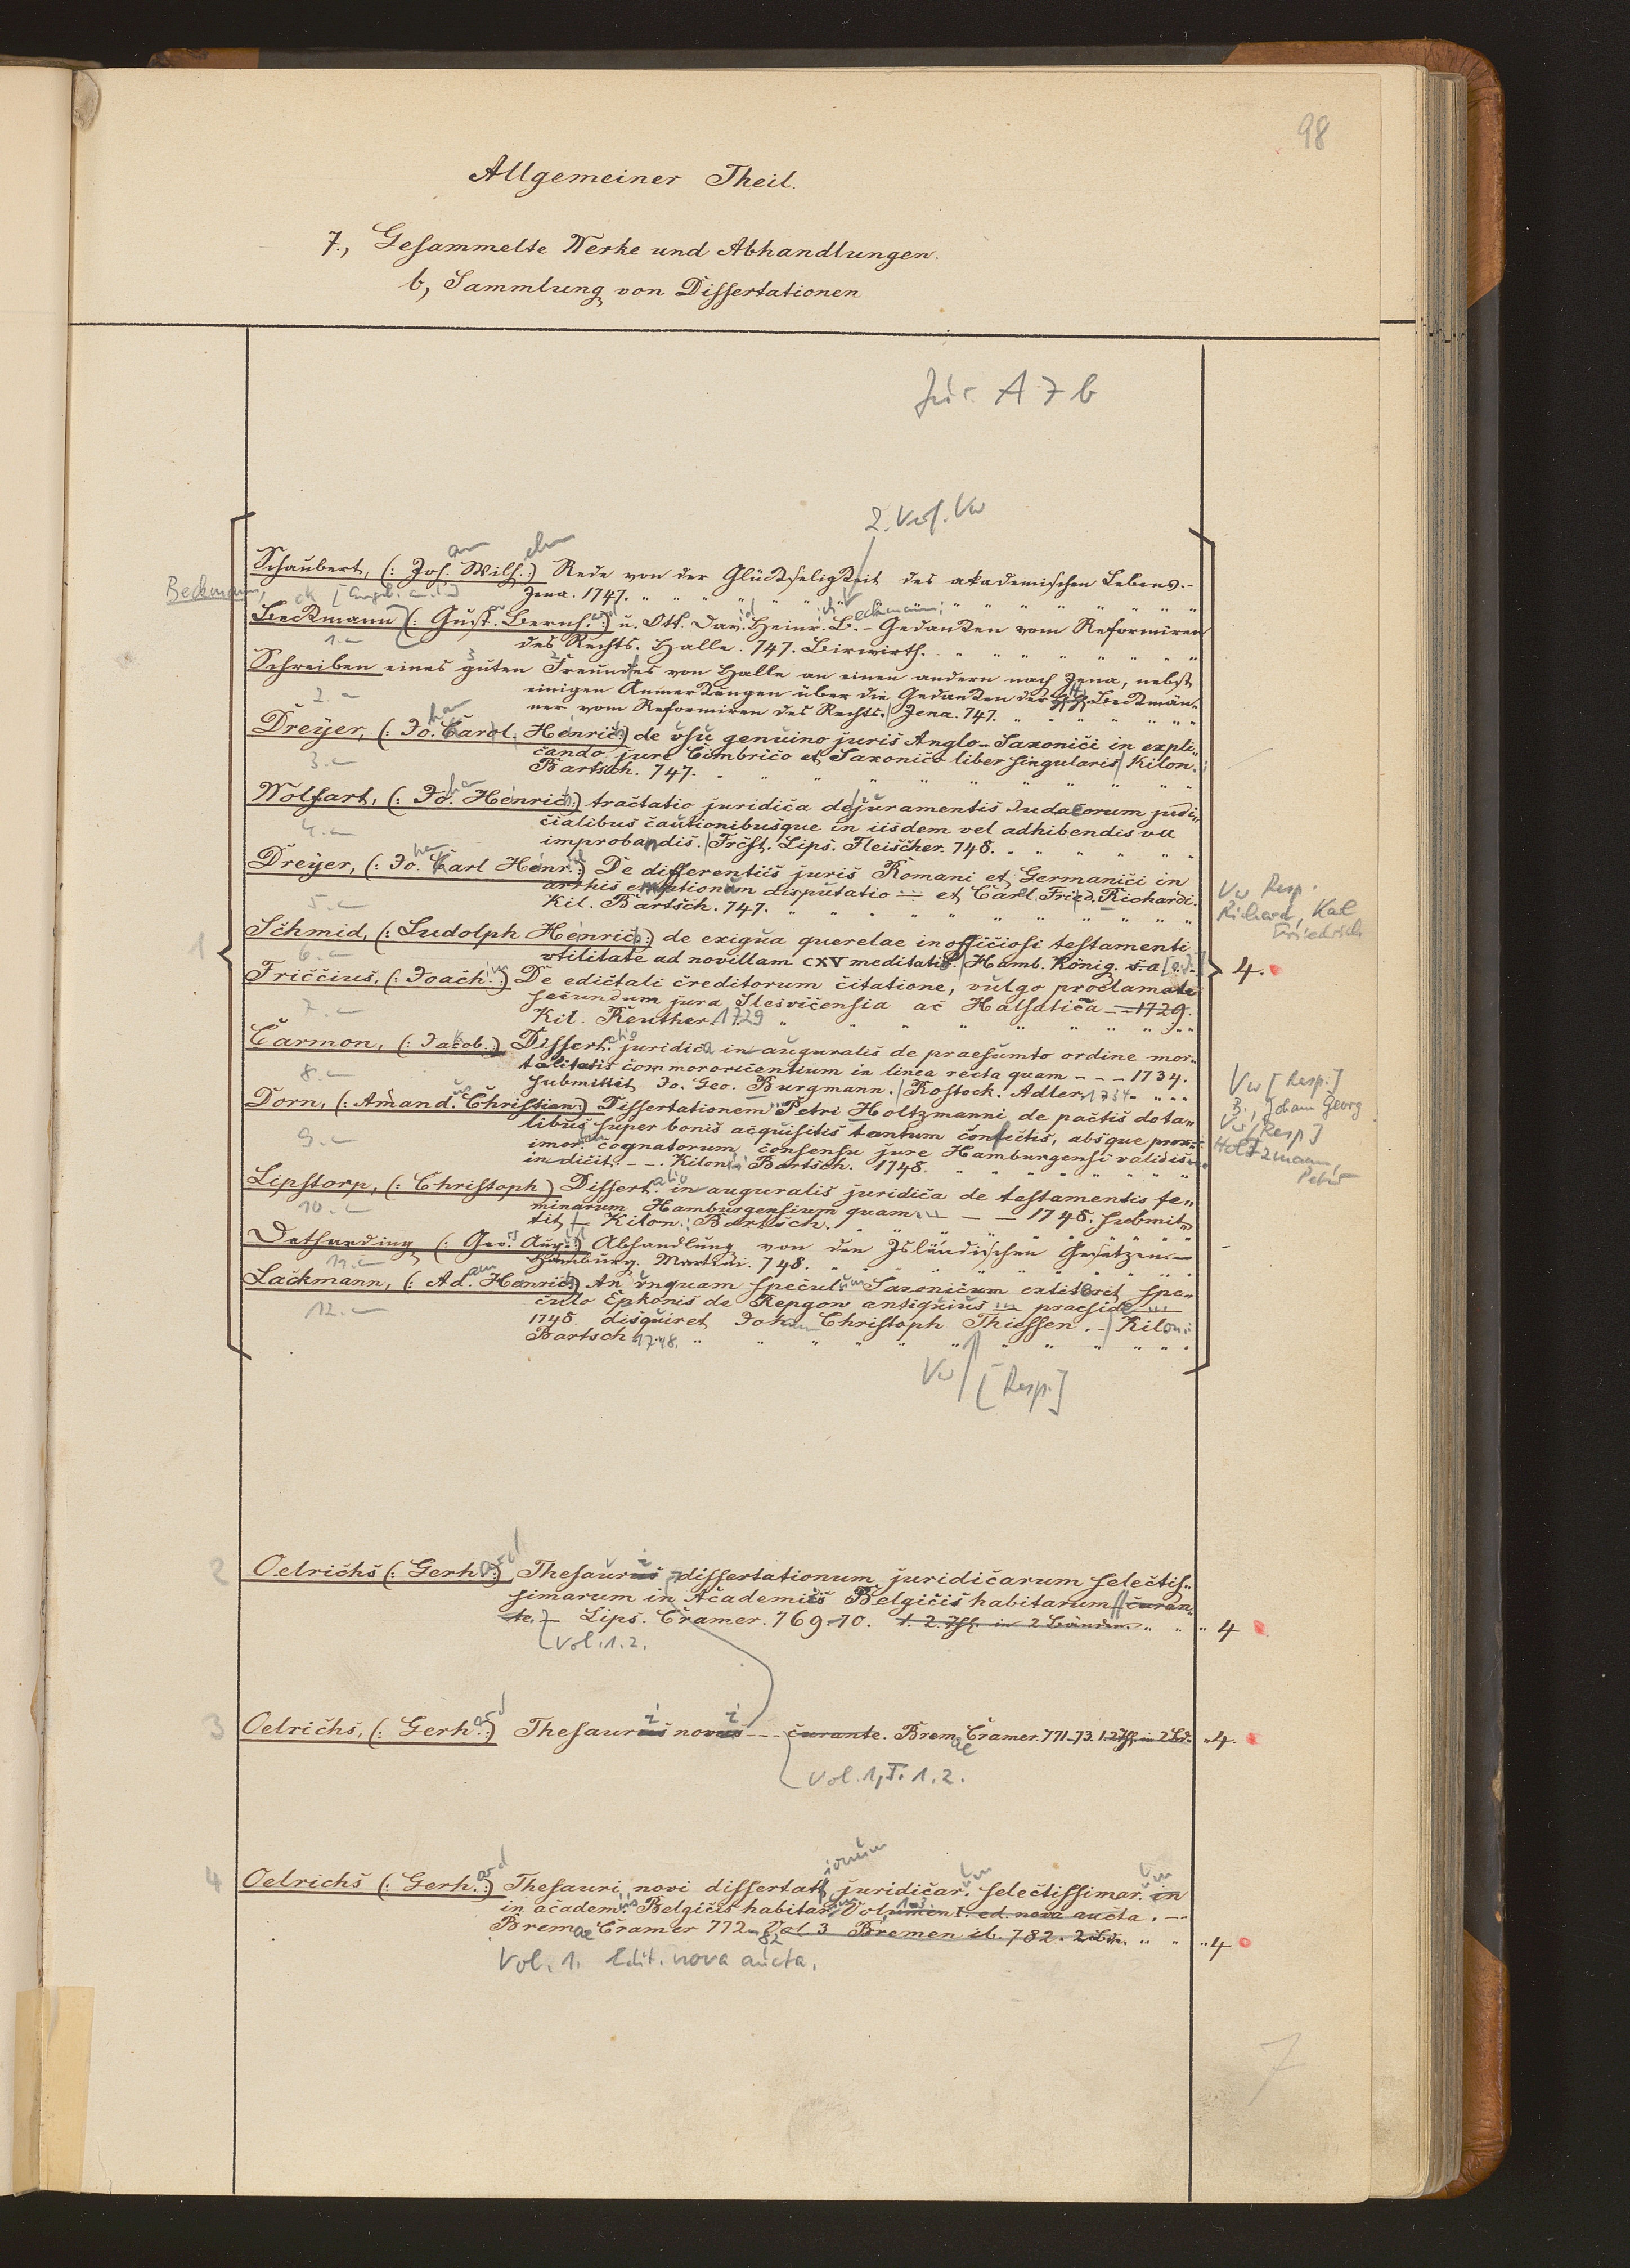 98
Allgemeiner Theil.
7., Gesammelte Werke und Abhandlungen.
b, Sammlung von Dissertationen
Jur. A 7 b
2. Verf. Vw
Schaubert, (: Joh. Wilh.:) Rede von der Glückseligkeit des akademischen Lebens.-
Jena. 1747. " " " " " " " " " " " "
Beckmann,
Beckmann (: Gust. Bernh.:) u. Ott. Dav. Heinr. B. - Gedanken vom Reformiren
1.-
des Rechts. Halle. 747. Birwirth. " " " " " " " "
Schreiben eines guten Freundes von Halle an einen andern nach Jena, nebst
2.-
einigen Anmerkungen über die Gedanken der Beckmän-
ner vom Reformiren des Rechts. Jena. 747. " " " " " "
Dreÿer, (: Jo. Carol. Henric:) de vsu genuino juris Anglo-Saxonici in expli-
3.-
cando jure Cimbrico et Saxonico liber singularis Kilon.
Bartsch. 747. " " " " " " " " " "
Wolfart, (: Jo. Henric:) tractatio juridica de juramentis Judaeorum judi-
4.-
cialibus cautionibusque in iisdem vel adhibendis vel
improbandis. Frcft. Lips. Fleischer. 748. " " " " "
Dreÿer, (: Jo. Carl Henr.:) De differentiis juris Romani et Germanici in
arrhis emptionum disputatio — et Carl. Fried. Richardi.
5.-
Kil. Bartsch. 747. " " " " " " " " " "
Vw Resp.
Richard, Karl
Friedrich
Schmid, (: Ludolph Henric:) de exigua querelae inofficiosi testamenti
6.-
vtilitate ad novillam CXV meditatio. Hamb. König. s. a
1
4.
Friccius, (: Joach.:) De edictali creditorum citatione, vulgo proclamate
secundum jura Slesvicensia ac Holsatica - - 1729.
7.-
Kil. Reuther. 1729 " " " " " " " "
Carmon, (: Jacob.:) Dissert. juridica inauguralis de praesumto ordine mor-
8.-
talitatis commororicentium in linea recta quam - - - 1734.
submittet Jo. Geo. Burgmann. Rostock. Adler. 1734. " " "
Vw [Resp.]
B., Johann Georg
Dorn, (: Amand. Christian:) Dissertationem Petri Holtzmanni de pactis dota-
libus super bonis acquisitis tantum confectis, absque prox-
9.-
imor. cognatorum consensu jure Hamburgensi validis
indicit. - -. Kiloni Bartsch. 1748. " " " " " " "
Vw [Resp]
Holtzmann,
Peter
Lipstorp, (: Christoph) Dissert. inauguralis juridica de testamentis fe-
10.-
minarum Hamburgensium quam - - - 1748. submit-
tit - Kilon. Bartsch. " " " " " " " "
Detharding (: Geo. Aug.:) Abhandlung von den Isländischen Gesetzen.-
11.-
Hamburg. Martini. 748. " " " " " " " " "
Lackmann, (: Ad. Henric:) An vnquam speculum Saxonicum extiterit spe-
12.-
culo Epkonis de Repgow antiquius praeside
1748. disquiret Johann Christoph Thiessen. - Kiloni
Bartsch 1748. " " " " " " " " " "
Vw [Resp.]
2 Oelrichs (: Gerh.:) Thesaurus dissertationum juridicarum selectis-
simarum in Academiis Belgicis habitarum curan-
te. - Lips. Cramer. 769-70. 1. 2. Thl. in 2 Bänden. " " " 4
Vol. 1. 2.
3 Oelrichs, (: Gerh.:) Thesaurus novus - - - curante. Bremae Cramer. 771-73. 1. 2 Thl. in 2 Bd. " 4.
Vol. 1, T. 1. 2.
4 Oelrichs (: Gerh.:) Thesauri novi dissertationum juridicar. selectissimar. in
in academ. Belgicis habitar. Volumen I. ed. nova aucta. -
Bremae Cramer 772-82 Vol. 3 Bremen ib. 782. 2 Bde. " " " 4
Vol. 1. Edit. nova aucta.
7